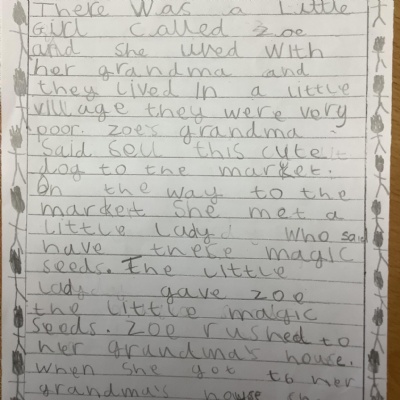 There was a little
Girl called zoe
and she lived with
her grandma and
they lived In a little
village they were very
poor. zoe's grandma
said sell this cute
dog to the market.
on the way to the
markert she met a
little lady who said
have these magic
seeds. The little
lady gave zoe
the little magic
seeds. zoe rushed to
her grandma's house.
when she got to her
grandma's house sh